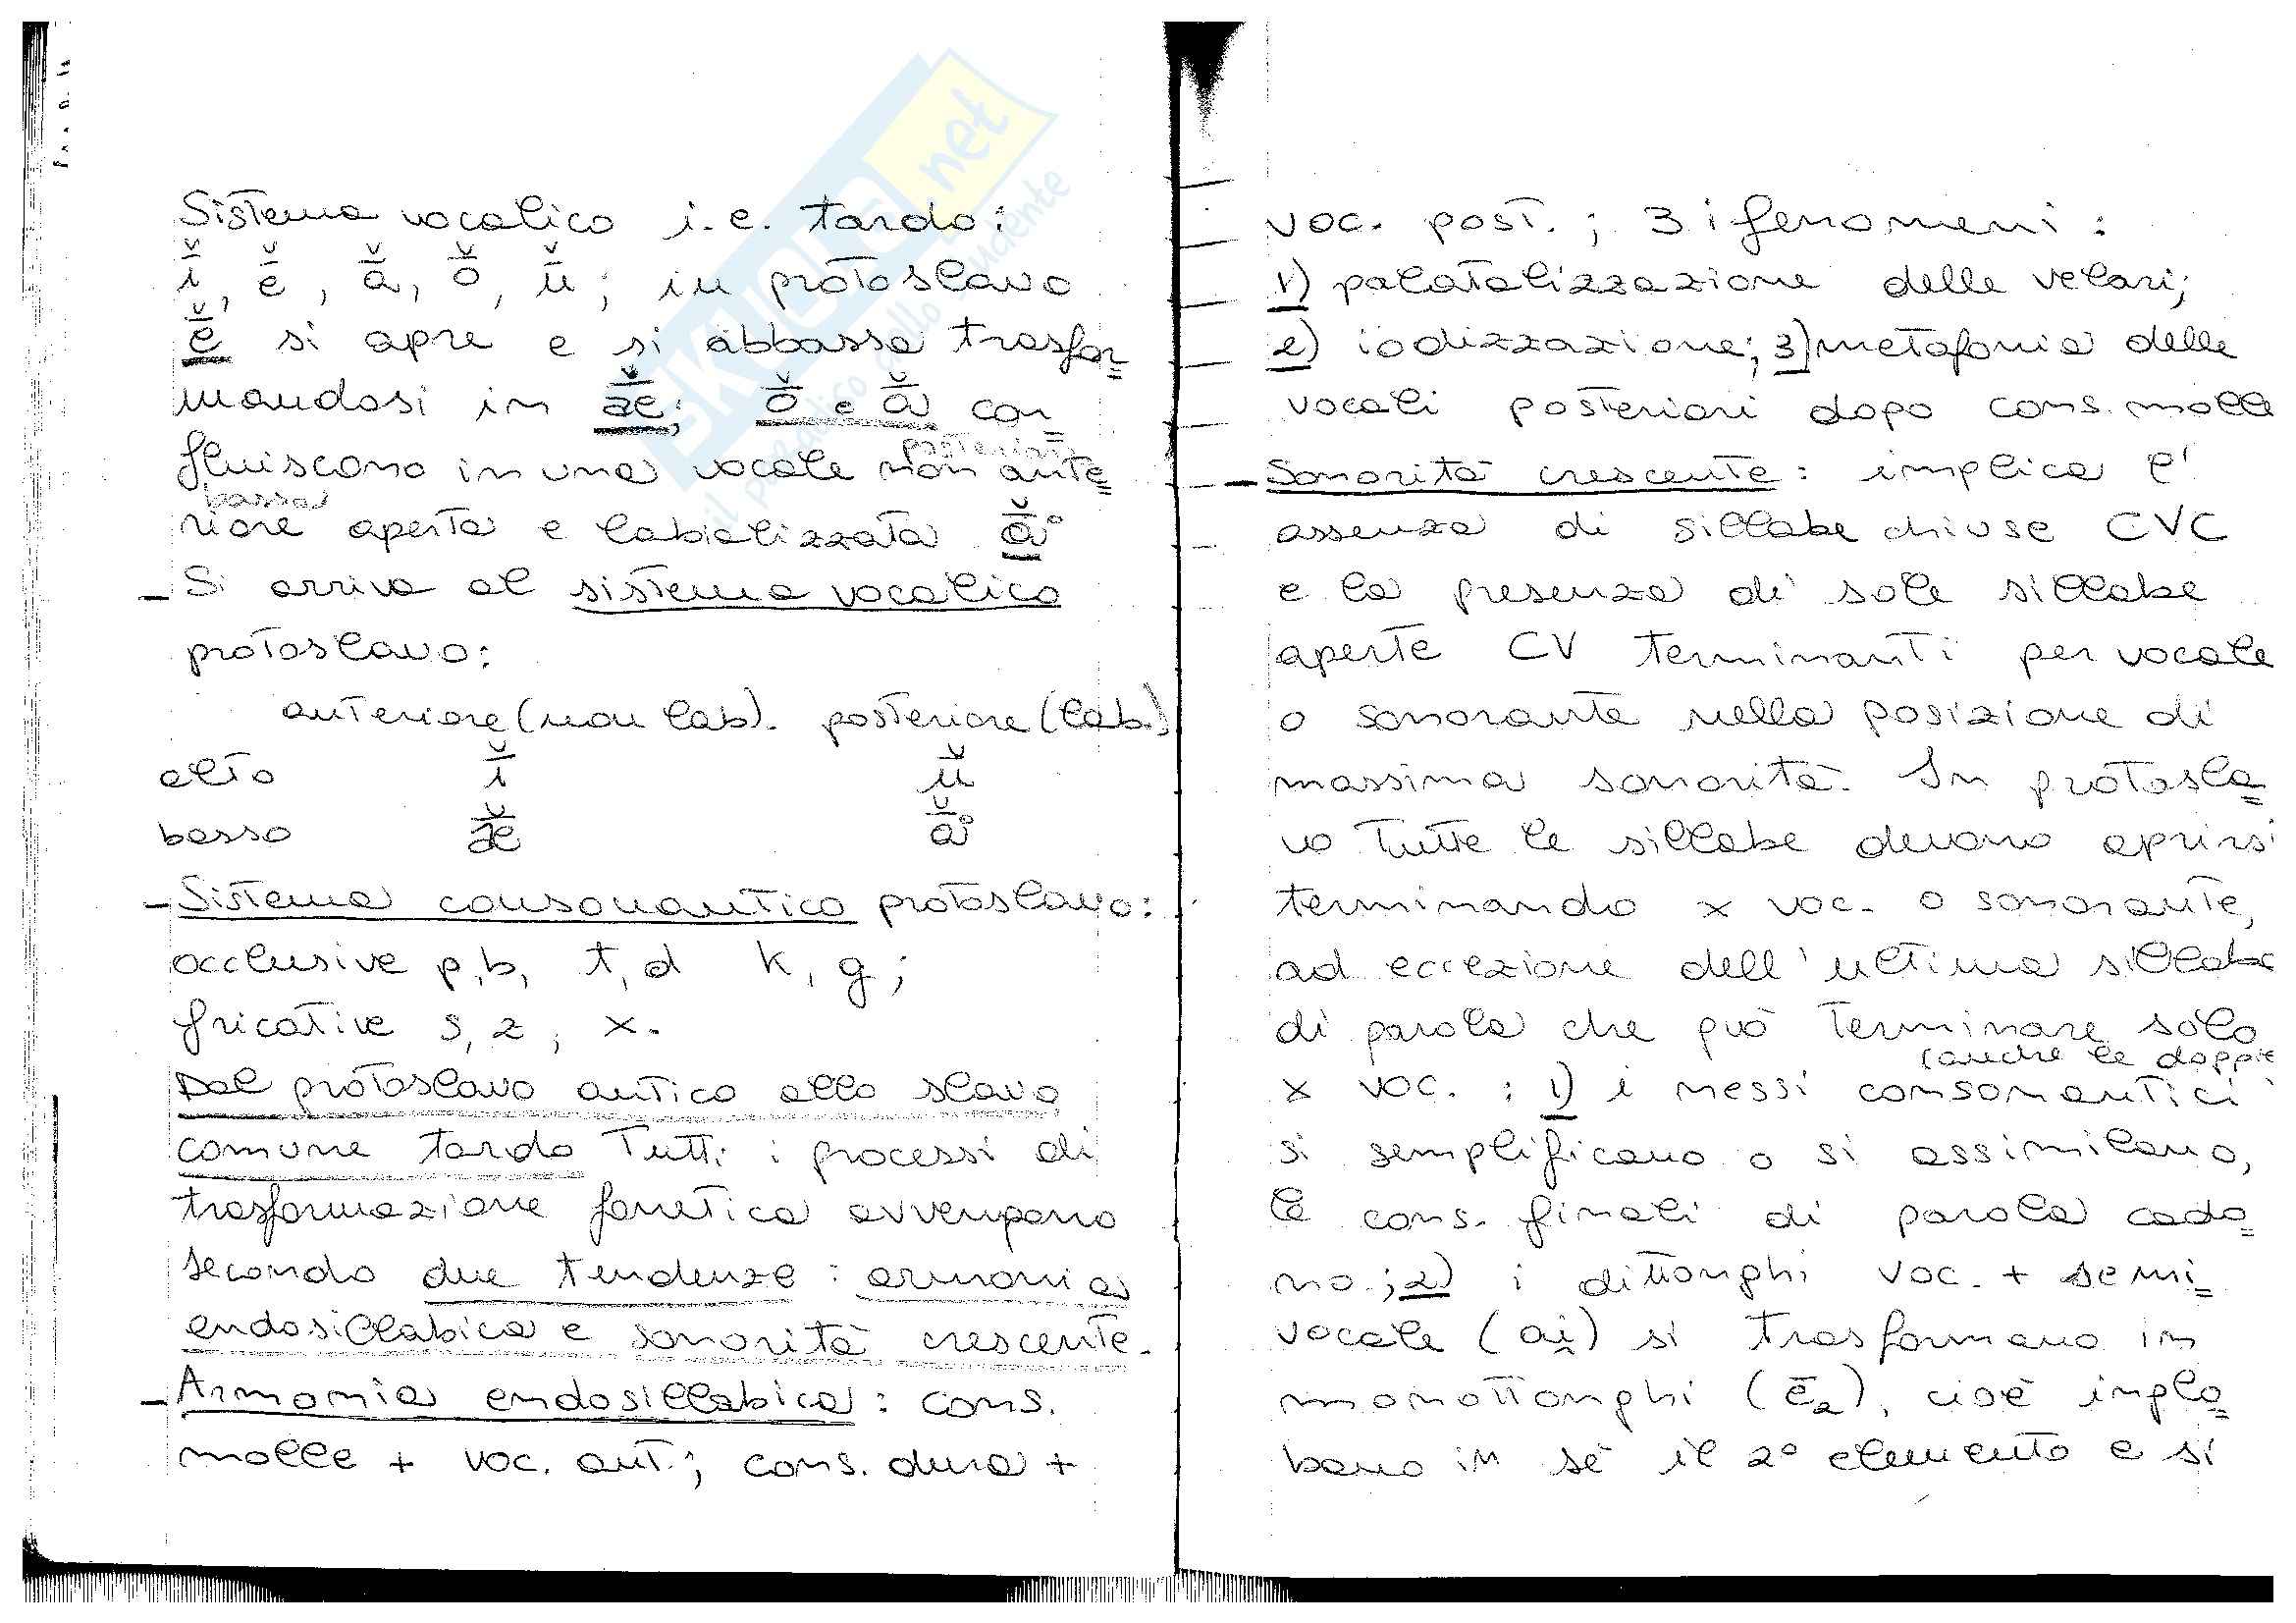 Sistema vocalico i.e. tardo:
ī̆, ē̆, ā̆, ō̆, ū̆; in protoslavo
ē̆ si apre e si abbassa trasfor=
mandosi in ǣ̆; ō̆ e ā̆ con=
fluiscono in una vocale non ante=
posteriore
bassa
riore aperta e labializzata ā̆°
- Si arriva al sistema vocalico
protoslavo:
anteriore (non lab). posteriore (lab.)
alto ī̆ ū̆
basso ǣ̆ ā̆°
- Sistema consonantico protoslavo:
occlusive p, b, t, d k, g;
fricative s, z, x.
Dal protoslavo antico allo slavo
comune tardo Tutti i processi di
trasformazione fonetica avvengono
secondo due tendenze: armonia
endosillabica e sonorità crescente.
- Armonia endosillabica: cons.
molle + voc. ant.; cons. dura +
voc. post.; 3 i fenomeni:
1) palatalizzazione delle velari;
2) iodizzazione; 3) metafonia delle
vocali posteriori dopo cons. molle
- Sonorità crescente: implica l'
assenza di sillabe chiuse CVC
e la presenza di sole sillabe
aperte CV terminanti per vocale
o sonorante nella posizione di
massima sonorità. In protosla=
vo tutte le sillabe devono aprirsi
terminando x voc. o sonorante,
ad eccezione dell'ultima sillaba
di parola che può terminare solo
(anche le doppie
x voc. : 1) i nessi consonantici
si semplificano o si assimilano,
le cons. finali di parola cado=
no; 2) i dittonghi voc. + semi=
vocale (ai̯) si trasformano in
monottonghi (ē₂), cioè inglo=
bano in sé il 2° elemento e si
SKUOLA.net
il paradiso dello studente